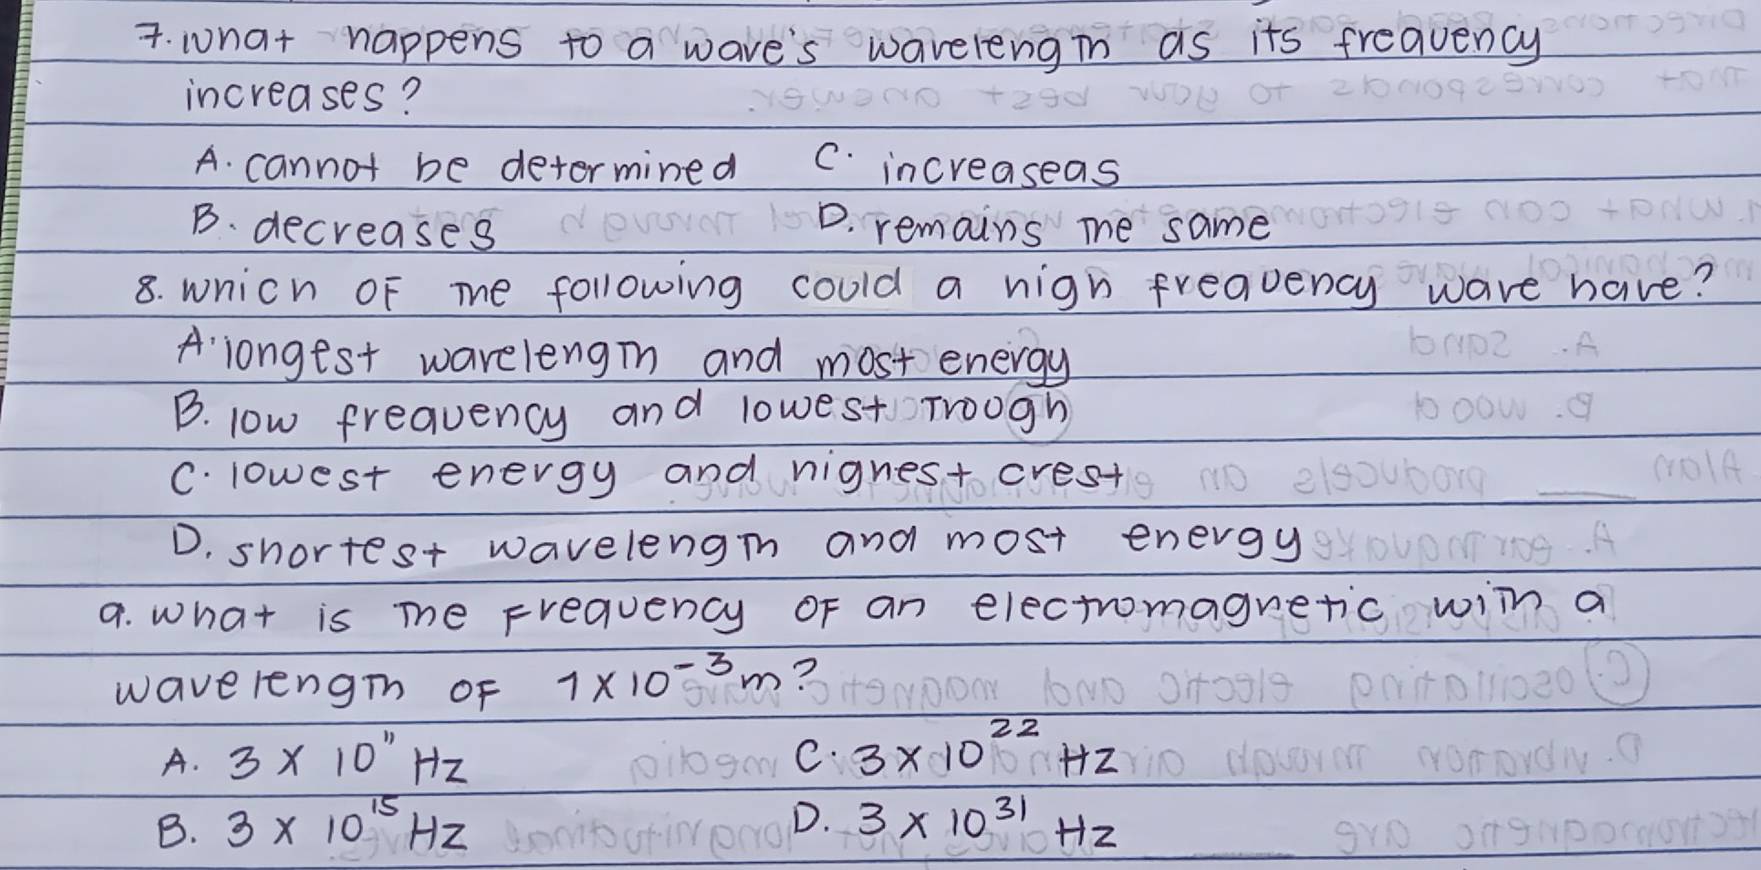 7. what happens to a wave's wavelength as its frequency
increases?
A. cannot be determined C. increaseas
B. decreases D. remains the same
8. which of the following could a high frequency wave have?
A. longest wavelength and most energy
B. low frequency and lowest trough
C. lowest energy and highest crest
D. shortest wavelength and most energy
9. what is the frequency of an electromagnetic with a
wavelength of 1 x 10⁻³ m?
A. 3 x 10¹¹ Hz C. 3 x 10²² Hz
B. 3 x 10¹⁵ Hz D. 3 x 10³¹ Hz